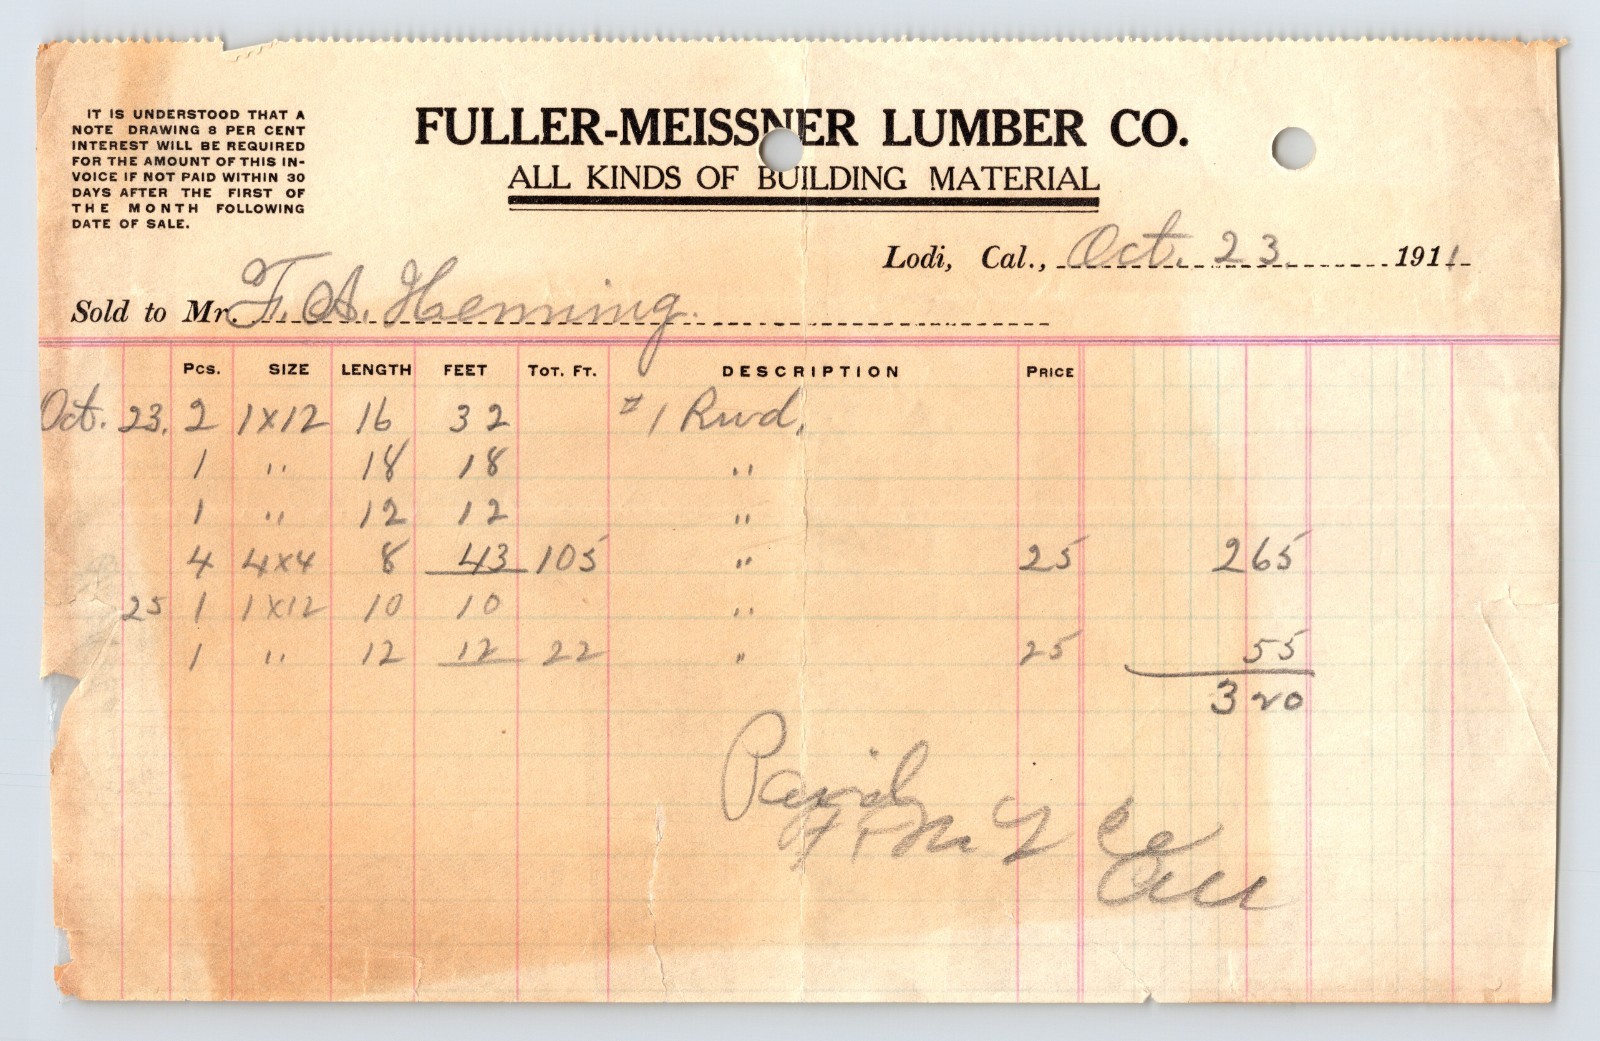 IT IS UNDERSTOOD THAT A
NOTE DRAWING 8 PER CENT
INTEREST WILL BE REQUIRED
FOR THE AMOUNT OF THIS IN-
VOICE IF NOT PAID WITHIN 30
DAYS AFTER THE FIRST OF
THE MONTH FOLLOWING
DATE OF SALE.
FULLER-MEISSNER LUMBER CO.
ALL KINDS OF BUILDING MATERIAL
Lodi, Cal., Oct. 23 1911
Sold to Mr. F. A. Henning.
PCS. SIZE LENGTH FEET TOT. FT. DESCRIPTION PRICE
Oct. 23, 2 1x12 16 32 #1 Rwd,
1 " 18 18 "
1 " 12 12 "
4 4x4 8 43 105 " 25 265
25 1 1x12 10 10 "
1 " 12 12 22 " 25 55
320
Paid